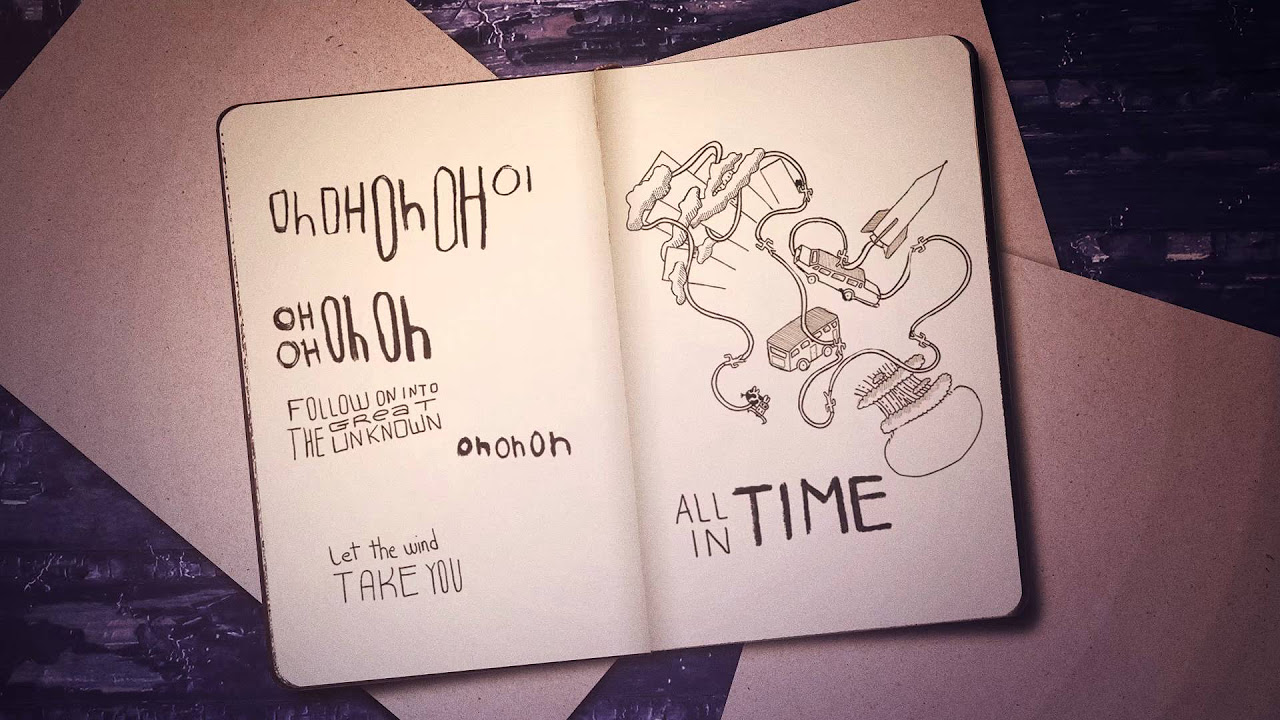 Oh OH Oh OH OI
OH
OH Oh Oh
FOLLOW ON INTO
THE GReaT
UNKNOWN
oh oh Oh
Let the wind
TAKE YOU
ALL
IN TIME